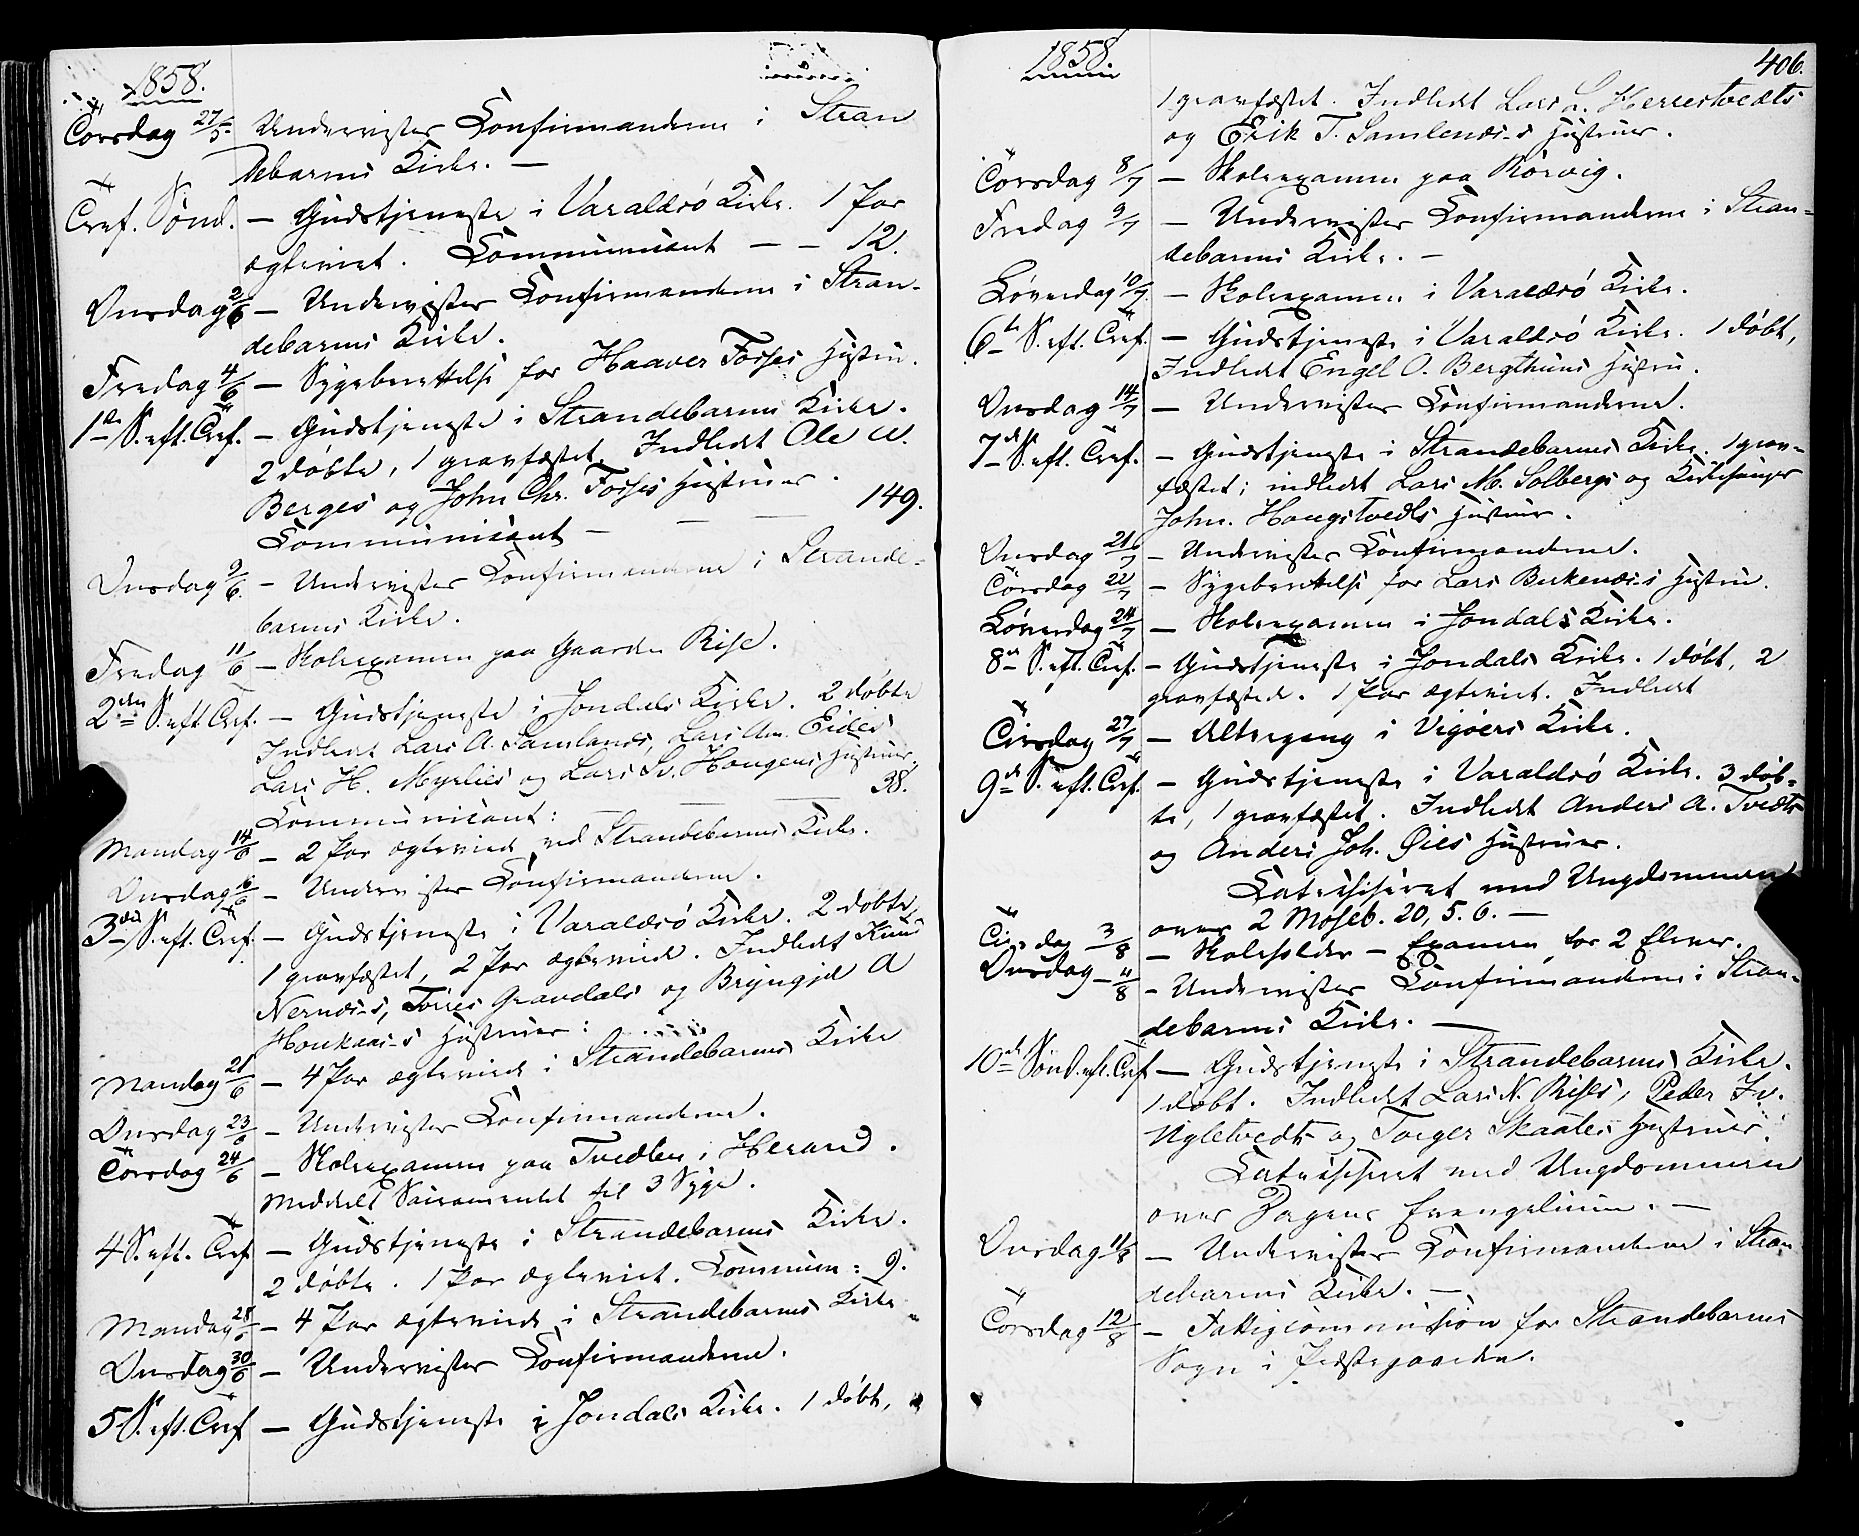 1858.
Torsdag 27/5. Undervistes Confirmanderne i Stran
debarms Kirke. —
Tref. Sønd. — Gudstjeneste i Varaldsö Kirke. 1 Par
ægteviet. Communicant — — 12.
Onsdag 2/6 — Underviistes Confirmanderne i Stran-
debarms Kirke.
Fredag 4/6 — Sygeberettelse for Haaver Fosses Hustru.
1ste S. eft. Tref. — Gudstjeneste i Strandebarms Kirke.
2 døbte, 1 gravfæstet. Indledt Ole
Berges og John Chr. Fosses Hustruer.
Communicant — — — 149.
Onsdag 9/6 — Undervistes Confirmanderne i Strande-
barms Kirke.
Fredag 11/6 — Skoleexamen paa Gaarden Rise.
2den S. eft. Tref. — Gudstjeneste i Jondals Kirke. 2 døbte
Indledt Lars A. Samlands, Lars Am. Eides
Lars H. Myrlies og Lars Sv. Haugens Hustruer.
Communicant: — — 38.
Mandag 14/6 — 2 Par ægteviede ved Strandebarms Kirke.
Onsdag 16/6 — Undervistes Confirmanderne.
3die S. eft. Tref. — Gudstjeneste i Varaldsö Kirke. 2 døbte,
1 gravfæstet, 2 Par ægteviede. Indledt Knud
Nernæs-s, Torres Gravdals og Brÿngjel A
Houkaas-s Hustruer:
Mandag 21/6 — 4 Par ægteviede i Strandebarms Kirke
Onsdag 23/6 — Undervistes Confirmanderne.
Torsdag 24/6 — Skoleexamen paa Tvedten i Herand.
Meddelt Sacramentet til 3 Syge.
4 S. eft. Tref — Gudstjeneste i Strandebarms Kirke.
2 døbte. 1 Par ægteviet. Commun: 9.
Mandag 28/6 — 4 Par ægteviede i Strandebarms Kirke
Onsdag 30/6 — Undervistes Confirmanderne.
5 S. eft. Tref — Gudstjeneste i Jondals Kirke. 1 døbt,
1858.
406.
1 gravfæstet. Indledt Lars L. Herrestvedts
og Erik T. Samlenæs-s Hustruer.
Torsdag 8/7 — Skoleexamen paa Rörvig.
Fredag 9/7 — Undervistes Confirmanderne i Stran-
debarms Kirke. —
Løverdag 10/7 — Skoleexamen i Varaldsö Kirke.
6te S. eft. Tref. — Gudstjeneste i Varaldsö Kirke. 1 døbt,
Indledt Engel O. Bergthuns Hustru.
Onsdag 14/7 — Undervistes Confirmanderne.
7de S. eft. Tref. — Gudstjeneste i Strandebarms Kirke. 1 grav-
fæstet; indledt Lars M. Solbergs og Kirkesanger
John. Haugstvedts Hustruer.
Onsdag 21/7 — Undervistes Confirmanderne.
Torsdag 22/7 — Sygeberettelse for Lars Birkenæs-s Hustru.
Løverdag 24/7 — Skoleexamen i Jondals Kirke.
8de S. eft. Tref. — Gudstjeneste i Jondals Kirke. 1 døbt, 2
gravfæstede. 1 Par ægteviet. Indledt
Tirsdag 27/7 — Altergang i Vigöers Kirke.
9de S. eft. Tref. — Gudstjeneste i Varaldsö Kirke. 3 døb-
te, 1 gravfæstet. Indledt Anders A. Tvedts
og Anders Joh. Øies Hustruer.
Catechiseret med Ungdommen
over 2 Moseb. 20, 5. 6. —
Tirsdag 3/8 — Skoleholder-Examen for 2 Elever.
Onsdag 4/8 — Undervistes Confirmanderne i Stran-
debarms Kirke. —
10de Sönd. eft. Tref — Gudstjeneste i Strandebarms Kirke.
1 døbt. Indledt Lars N. Rises, Peder Iv.
Ugletvedts og Torger Skaales Hustruer.
Catechiseret med Ungdommen
over Dagens Evangelium. —
Onsdag 11/8 — Undervistes Confirmanderne i Stran
debarms Kirke. —
Torsdag 12/8 — Fattigcommission for Strandebarms
Sogn i Præstegaarden.